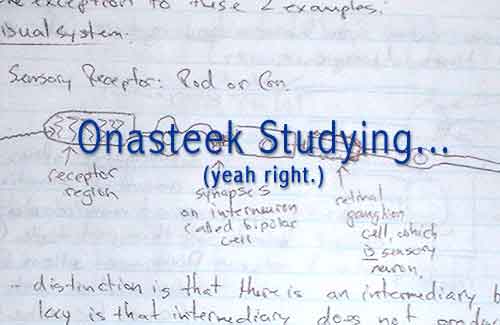 exception to these 2 examples.
isual system:
Sensory Receptor: Rod or Con.
Onasteek Studying...
(yeah right.)
receptor
region
synapses
on interneuron
called bipolar
cell
retinal
ganglion
cell, which
is sensory
neuron.
- distinction is that there is an intermediary b
key is that intermediary does not